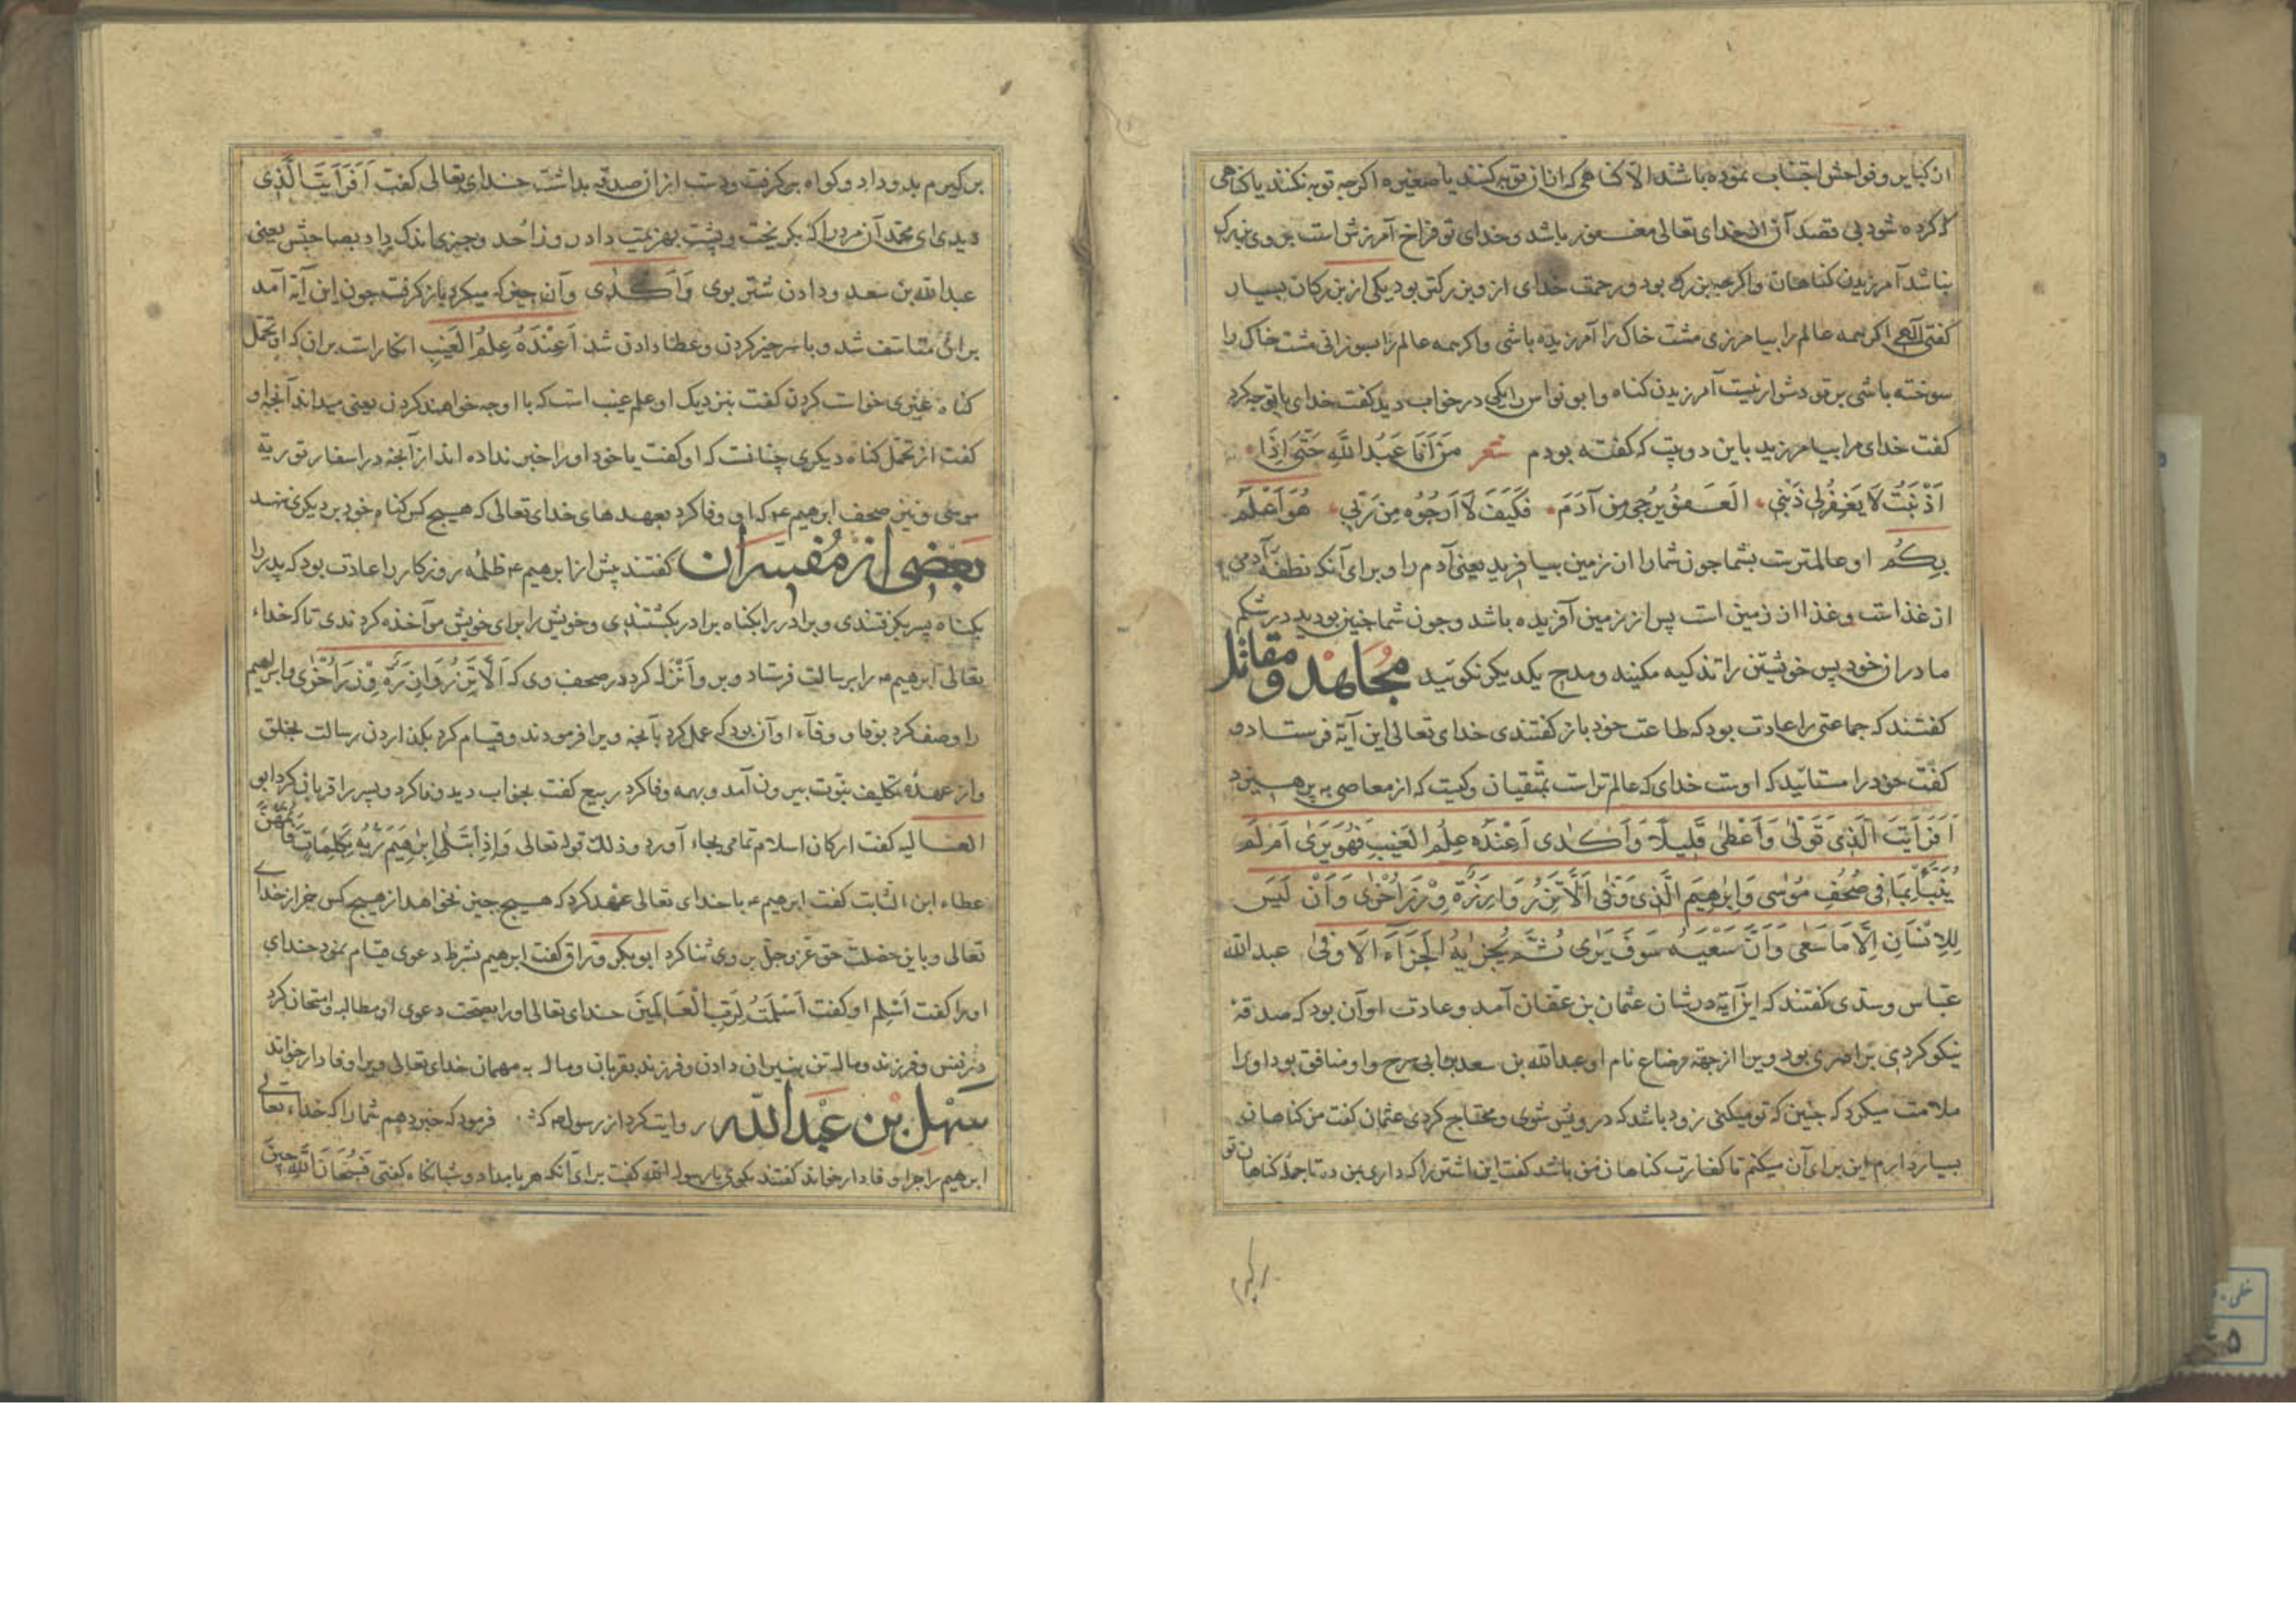 از کبایر و فواحش اجتناب نموده باشند الا کناهی که از آن توبه کنند یا صغیره اکرچه توبه نکنند یا کناهی
که کرده شود بی قصد آن از خدای تعالی مغفور باشد و خدای تو فراخ آمرزش است بر وی بزرک
نباشد آمرزیدن کناهان واکرچه بزرک بود و رحمت خدای از و بزرکتر بود یکی از بزرکان بسیار
کفتی الهی اکر همه عالم را بیامرزی مشت خاک را آمرزیده باشی واکر همه عالم را بسوزانی مشت خاک را
سوخته باشی بر تو دشوار نیست آمرزیدن کناه وابو نواس را یکی در خواب دید کفت خدای با تو چه کرد
کفت خدای مرا بیامرزید باین دو بیت که کفته بودم شعر مَنْ اَنَا عَبْدُ اللّهِ حَتّی اِذَا
اَذْنَبْتُ لَا یَغْفِرُ لِی ذَنْبِی الْعَفْوُ یُرْجی مِنْ آدَمَ فَکَیْفَ لَا اَرْجُوهُ مِنْ رَبّی هُوَ اَعْلَمُ
بِکُم او عالمترست بشما چون شما را از زمین بیافرید یعنی آدم را و برای آنکه نطفه آدمی
از غذاست وغذا از زمین است پس از زمین آفریده باشد وچون شما جنین بودید در شکم
مادران خود پس خویشتن را تذکیه مکنید ومدح یکدیکر نکوئید مجاهد و مقاتل
کفتند که جماعتی را عادت بود که طاعت خود باز کفتندی خدای تعالی این آیة فرستاد و
کفت خود را مستائید که اوست خدای که عالم تراست بمتقیان وکیست که از معاصی بپرهیزد
اَفَرَاَیْتَ الَّذِی تَوَلّی وَاَعْطی قَلِیلًا وَاَکْدی اَعِنْدَهُ عِلْمُ الْغَیْبِ فَهُوَ یَری اَمْ لَمْ
یُنَبَّأْ بِمَا فِی صُحُفِ مُوسی وَاِبْرهِیمَ الَّذِی وَفّی اَلَّا تَزِرُ وَازِرَةٌ وِزْرَ اُخْری وَاَنْ لَیْسَ
لِلْاِنْسَانِ اِلَّا مَا سَعی وَاَنَّ سَعْیَهُ سَوْفَ یُری ثُمَّ یُجْزیهُ الْجَزَآءَ الْاَوْفی عبدالله
عباس وسدی کفتند که این آیة در شان عثمان بن عفان آمد وعادت او آن بود که صدقه
نیکو کردی برادری بود ویرا از جهة رضاع نام او عبدالله بن سعد بن ابی سرح واو منافق بود اورا
ملامت میکرد که چنین که تو میکنی زود باشد که درویش شوی ومحتاج کردی عثمان کفت من کناهان
بسیار دارم این برای آن میکنم تا کفارت کناهان من باشد کفت این اشتر را که داری بمن ده تا جمله کناهان تو
بر کیرم
بر کیرم بدو داد وکواه بر کرفت ودست از آن صدقه بداشت خدای تعالی کفت اَفَرَاَیْتَ الَّذِی
دیدی ای محمد آن مرد را که بکریخت وپشت بهزیمت داد در روز احد وچیزی اندک داد بصاحبش یعنی
عبدالله بن سعد ودادن شتر بوی وَاَکْدی وآن چیز که میکرد باز کرفت چون این آیة آمد
برائی متاسف شد وباسر چیز کردن وعطا دادن شد اَعِنْدَهُ عِلْمُ الْغَیْبِ انکار است بران که او تحمل
کناه غیری خواست کردن کفت بنزدیک او علم غیب است که با او چه خواهند کردن یعنی میداند آنچه او
کفت از تحمل کناه دیکری چنانست که او کفت یا خود اورا خبر نداده اند از آنچه در اسفار توریة
موسی ونیز صحف ابرهیم ع که او وفا کرد بعهدهای خدای تعالی که هیچ کس کناه خود بر دیکری ننهد
بعضی از مفسران کفتند پیش از ابرهیم ع ظلمه روزکار را عادت بود که پدر را
بکناه پسر بکرفتندی وبرادر را بکناه برادر بکشتندی وخویش را برای خویش مواخذه کردندی تا که خداء
تعالی ابرهیم ع را برسالت فرستاد وبرو انزله کرد در صحف وی که اَلَّا تَزِرُ وَازِرَةٌ وِزْرَ اُخْری وابرهیم
را وصف کرد بوفا و وفآء او آن بود که عمل کرد بآنچه ویرا فرمودند وقیام کرد بکذاردن رسالت بخلق
واز عهده تکلیف نبوت بیرون آمد وبهمه وفا کرد ربیع کفت بخواب دید وفا کرد وپسر را قربانی کرد ابو
العالیه کفت ارکان اسلام تمامی بجاء آورد وذلک قوله تعالی وَاِذِ ابْتَلی اِبْرهِیمَ رَبُّهُ بِکَلِمَاتٍ فَاَتَمَّهُنَّ
عطاء ابن الثابت کفت ابرهیم ع با خدای تعالی عهد کرد که هیچ چیز نخواهد از هیچ کس جز از خدای
تعالی وباین خصلت حق عز وجل بر وی ثنا کرد ابو بکر وراق کفت ابرهیم بشرط دعوی قیام نمود خدای
اورا کفت اَسْلِم او کفت اَسْلَمْتُ لِرَبِّ الْعَالَمِینَ خدای تعالی اورا بصحت دعوی او مطالبه وامتحان کرد
در نفس وفرزند ومال تن بنیران دادن وفرزند بقربان ومال به مهمان خدای تعالی ویرا وفادار خواند
سهل بن عبدالله روایت کرد از رسول ص که فرمود که خبر دهم شما را که خداء تعالی
ابرهیم را چرا وفادار خواند کفتند بکوی یا رسول الله کفت برای آنکه هر بامداد وشبانکاه کفتی فَسُبْحَانَ اللّهِ حِینَ